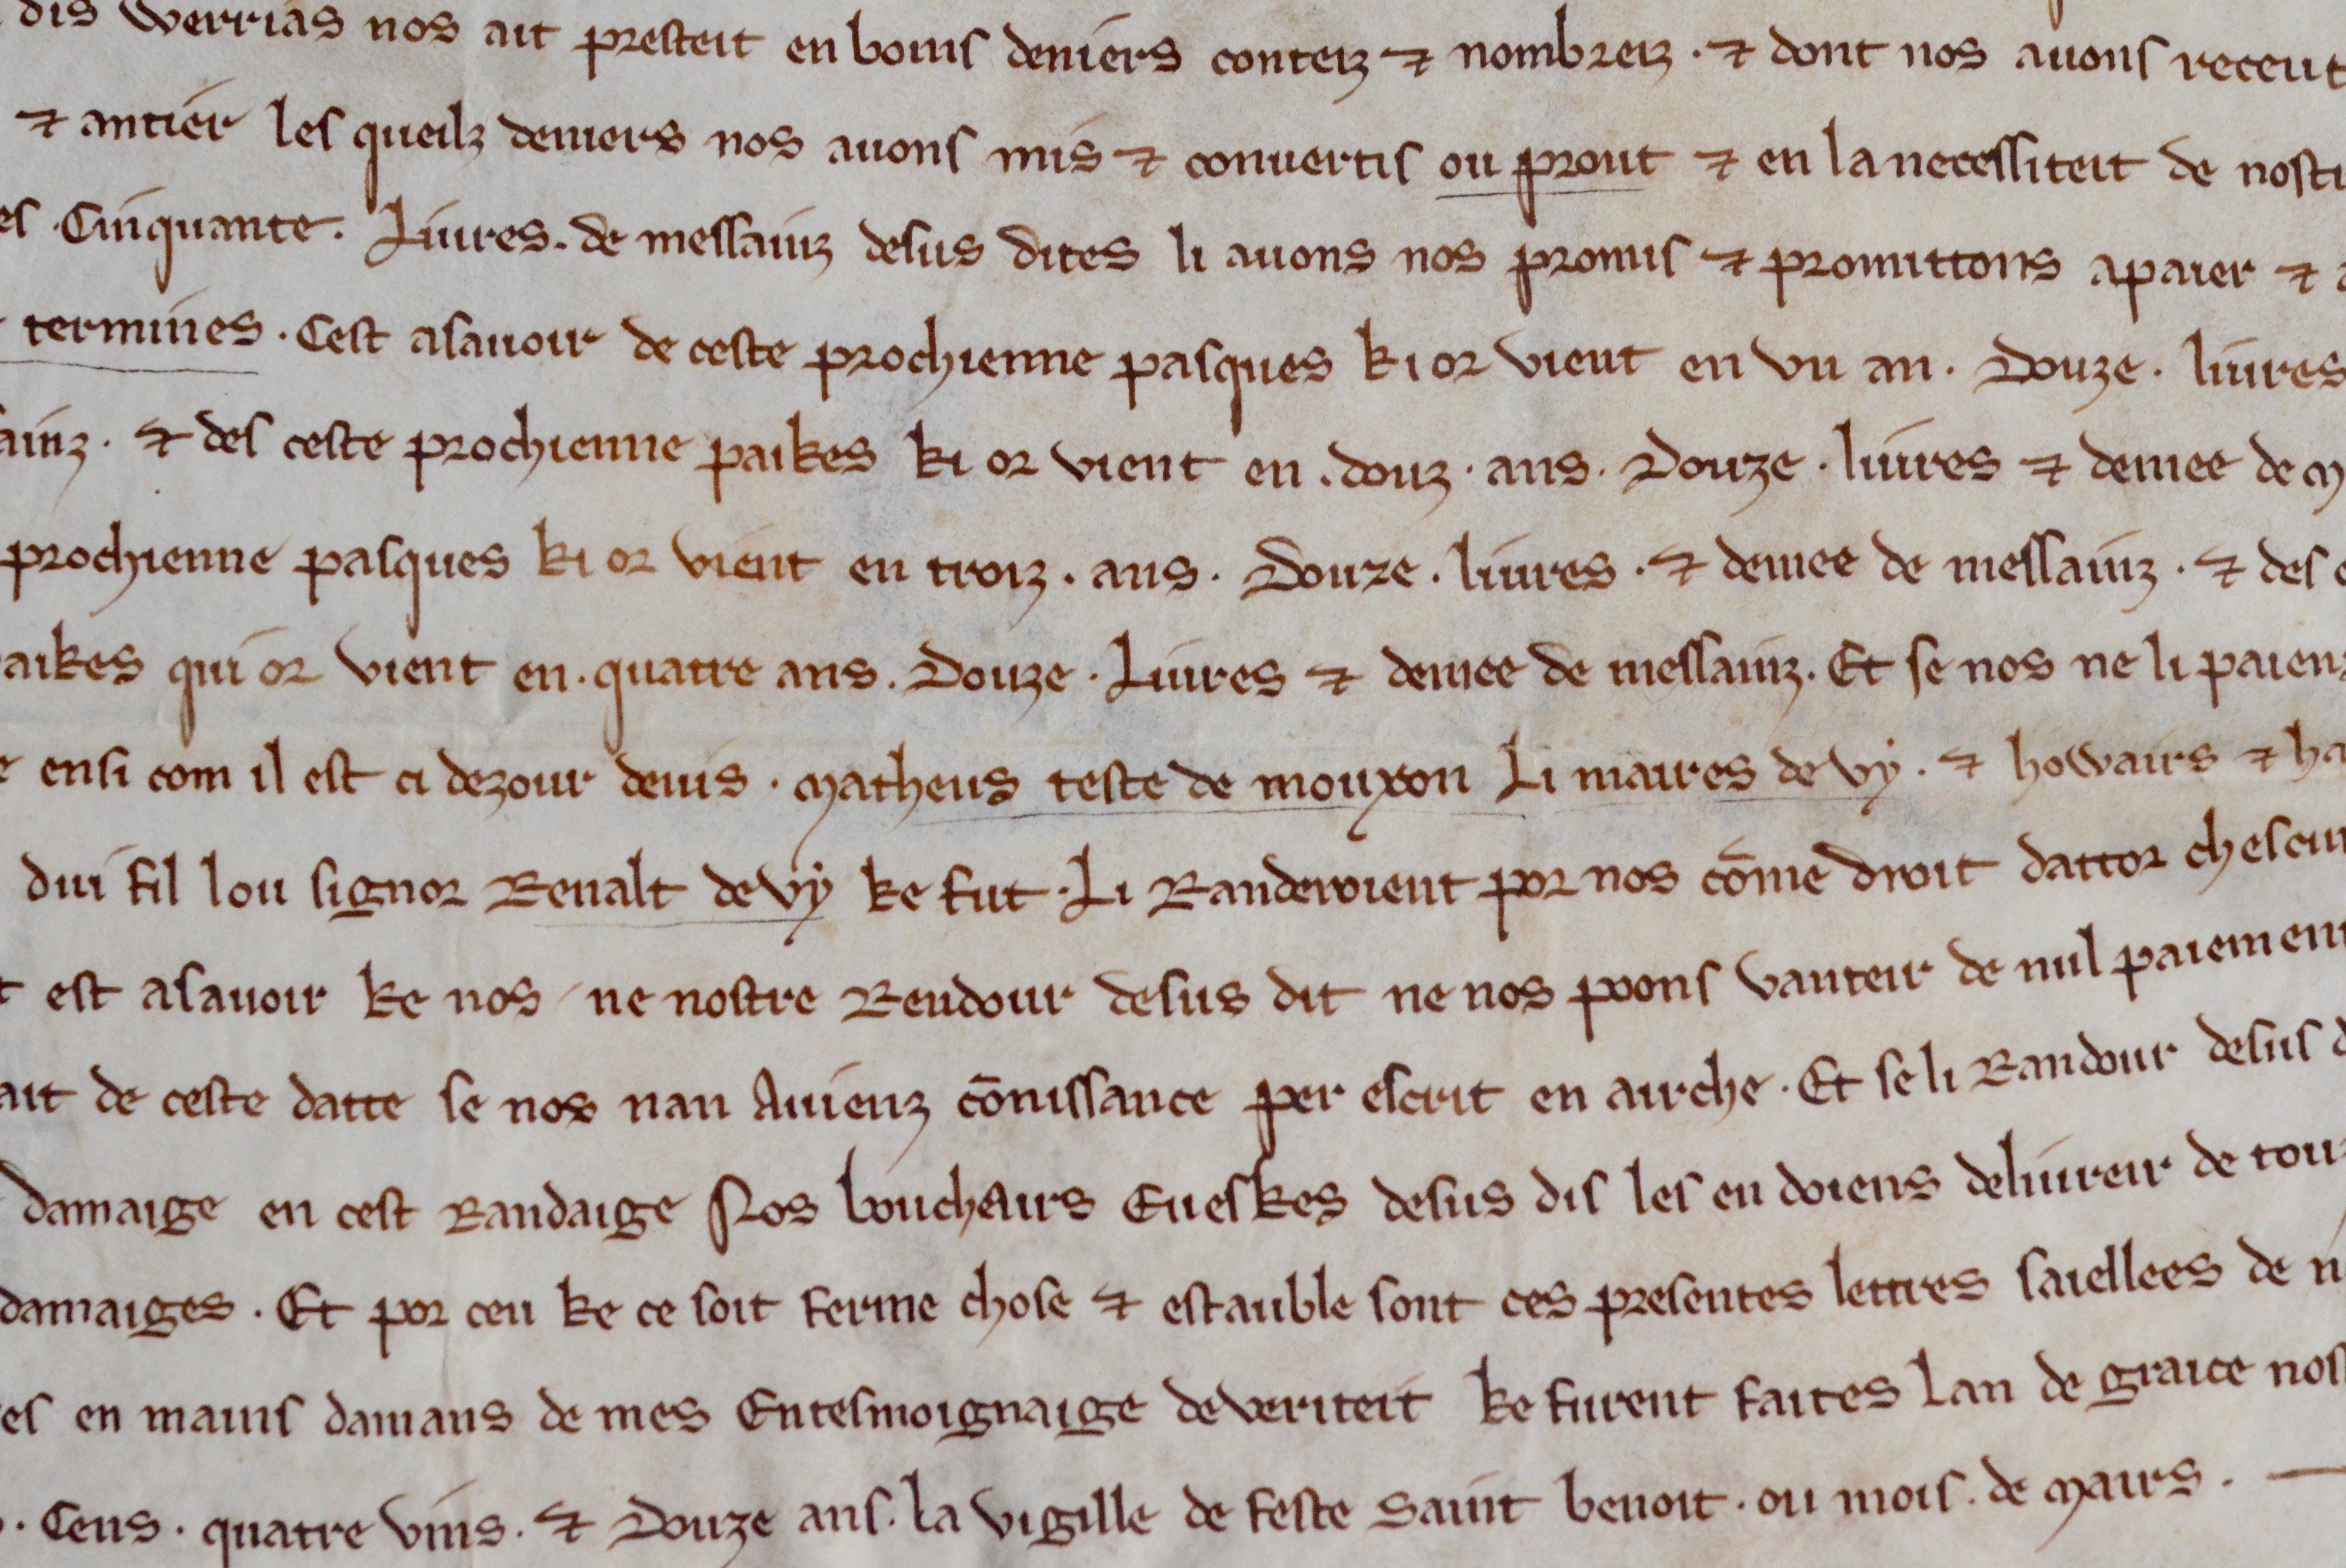 dis Werrias nos ait presteit en bouis deniers conteiz ⁊ nombreiz · ⁊ dont nos auons receut
⁊ antier les queilz deniers nos auons mis ⁊ conuertis ou prout ⁊ en la necessiteit de nostr
es · Cinquante · Liures · de messainz desus dites li auons nos promis ⁊ promittons a paier ⁊
termines · Cest asauoir de ceste prochienne pasques ki or vient en vn an · Douze · liures
ainz · ⁊ des ceste prochienne paikes ki or vient en · douz · ans · Douze · liures ⁊ demee de m
prochienne pasques ki or vient en troiz · ans · Douze · liures · ⁊ demee de messainz · ⁊ des
aikes qui or vient en · quatre ans · Douze · Liures ⁊ demee de messainz · Et se nos ne li paienz
ensi com il est ci dezour deuis · Matheus teste de mouxon Li maires de vy · ⁊ howairs ⁊ ha
dui fil lou signor Renalt de vy ke fut · Li Randeroient por nos cōme droit dattor chescun
est asauoir ke nos ne nostre Rendour desus dit ne nos poons vanteir de nul paiement
ait de ceste datte se nos nan Auienz cōnissance per escrit en airche · Et se li Randour desus d
damaige en cest Randaige Nos bouchairs Eueskes desus dis les en doiens deliureir de touz
damaiges · Et por ceu ke ce soit ferme chose ⁊ estauble sont ces presentes lettres saiellees de n
es en mains damans de mes En tesmoignaige de veriteit ke furent faites lan de graice nos
· Cens · quatre vins · ⁊ Douze ans · la vigille de feste saint benoit · ou mois · de mairs ·